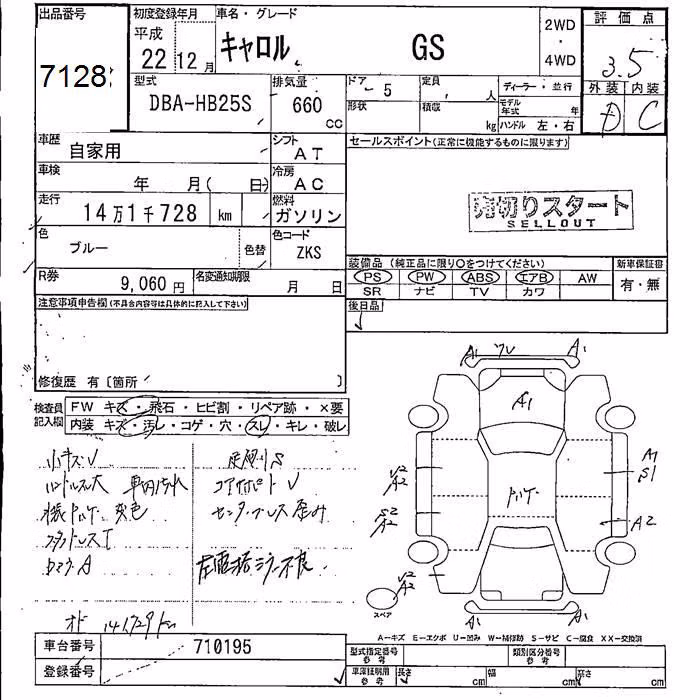 出品番号
7128
初度登録年月
平成
22 12月
車名・グレード
キャロル GS
2WD
・
4WD
評価点
3.5
外装 内装
D C
型式
DBA-HB25S
排気量
660
cc
ドア 5
形状
定員 人
積載 kg
ディーラー・並行
モデル年式 年
ハンドル 左・右
車歴
自家用
シフト
AT
セールスポイント(正常に機能するものに限ります)
車検
年 月( 日)
冷房
AC
走行
14万1千728 km
燃料
ガソリン
売切りスタート
SELLOUT
色
ブルー
色替
色コード
ZKS
装備品(純正品に限り○をつけてください)
PS PW ABS エアB AW
SR ナビ TV カワ
新車保証書
有・無
R券
9,060円
名変通知期限
月 日
後日品
注意事項申告欄(不具合内容等は具体的に記入して下さい)
修復歴 有〔箇所 〕
検査員記入欄
FW キズ・飛石・ヒビ割・リペア跡・×要
内装 キズ・汚レ・コゲ・穴・スレ・キレ・破レ
小キズV
ハンドルスレ大 車内汚れ
センター
A1 A1
A1
V2
A2
S2
A2
A1
S1
A2
V2
A2
A1 A1
スペア
オド 141729km
A-キズ E-エクボ U-凹み W-補修跡 S-サビ C-腐食 XX-交換済
車台番号
710195
登録番号
型式指定番号
参考
類別区分番号
参考
車庫証明用
参考
長さ cm
幅 cm
高さ cm